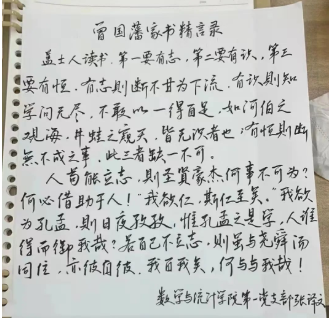 曾国藩家书精言录
盖士人读书，第一要有志，第二要有识，第三
要有恒。有志则断不甘为下流，有识则知
学问无尽，不敢以一得自足，如河伯之
观海，井蛙之窥天，皆无识者也；有恒则断
无不成之事，此三者缺一不可。
人苟能立志，则圣贤豪杰何事不可为？
何必借助于人！“我欲仁，斯仁至矣。”我欲
为孔孟，则日夜孜孜，惟孔孟之是学，人谁
得而御我哉？若自己不立志，则虽与尧舜禹汤
同住，亦彼自彼，我自我矣，何与与我哉！
数学与统计学院第一党支部张译文